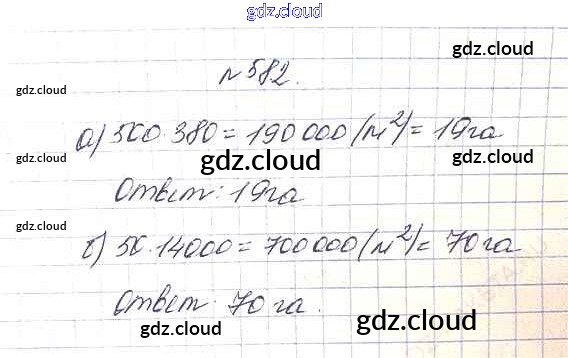 gdz.cloud
№582.
gdz.cloud
gdz.cloud
а) 500·380 = 190 000 (м²) = 19 га
gdz.cloud
gdz.cloud
gdz.cloud
Ответ: 19 га
gdz.cloud
б) 50·14000 = 700 000 (м²) = 70 га
Ответ: 70 га.
gdz.cloud
gdz.cloud